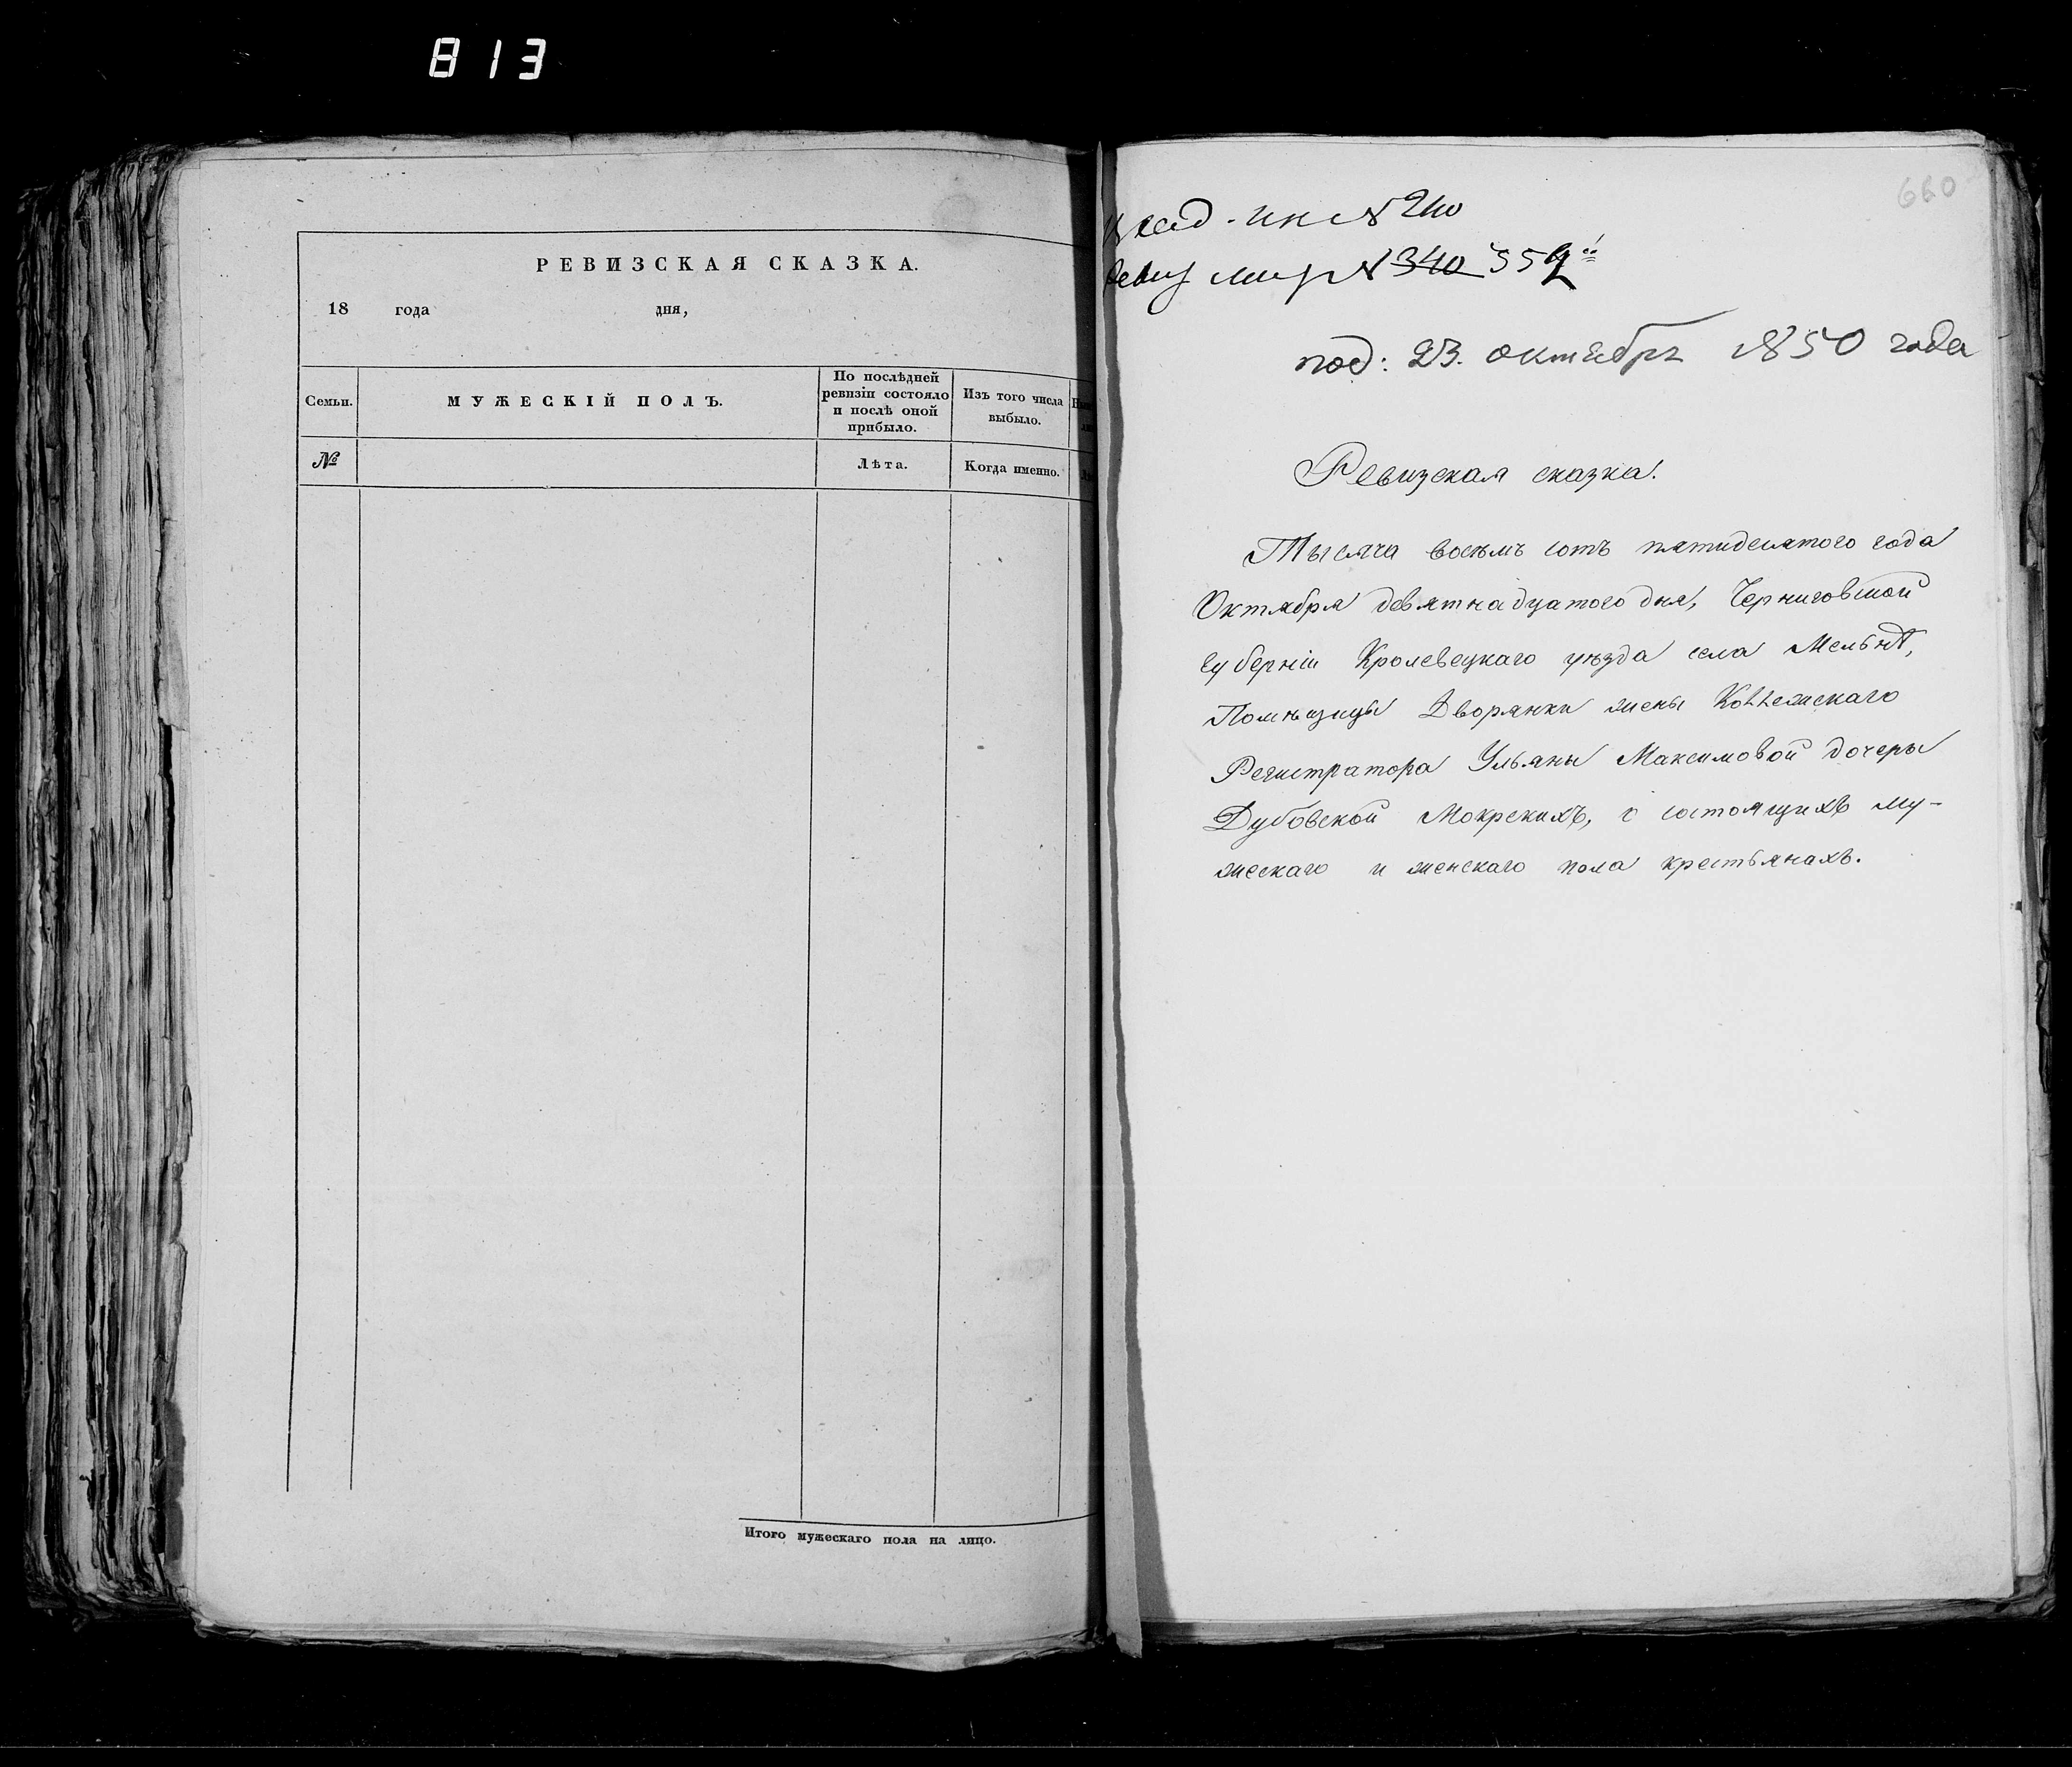 813
РЕВИЗСКАЯ СКАЗКА.
18 года дня,
Семьи.
МУЖЕСКІЙ ПОЛЪ.
По послѣдней
ревизіи состояло
и послѣ оной
прибыло.
Изъ того числа
выбыло.
№
Лѣта.
Когда именно.
Итого мужескаго пола на лицо.
660
№ 240
№ 340 559
под: 23. октября 1850 года
Ревизская сказка.
Тысяча восѣмъ сотъ пятидесятого года
Октября девятнадцатого дня, Черниговской
Губерніи Кролевецкаго уѣзда села Мельнѣ,
Помѣщицы Дворянки жены Коллежскаго
Регистратора Ульяны Максимовой дочеры
Дубовской Мокрскихъ, о состоящихъ му-
жескаго и женскаго пола крестьянахъ.